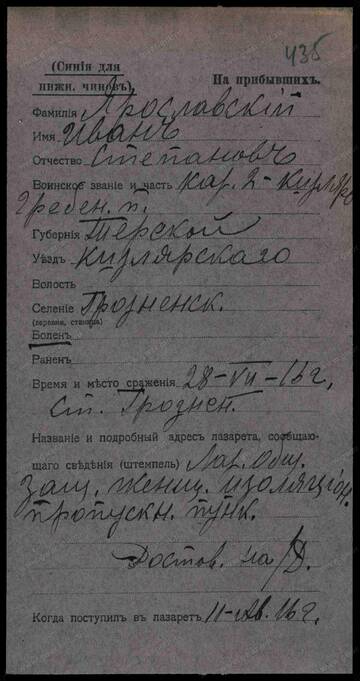 435
(Синія для нижн. чиновъ).
На прибывшихъ.
Фамилія Ярославскій
Имя Иванъ
Отчество Степановъ
Воинское званіе и часть каз. 2-Кизляро
Гребен. п.
Губернія Терской
Уѣздъ Кизлярскаго
Волость
Селеніе Грозненск.
(деревня, станица)
Боленъ
Раненъ
Время и мѣсто сраженія 28-VII-16 г.
Ст. Грознен.
Названіе и подробный адресъ лазарета, сообщаю-
щаго свѣдѣнія (штемпель) Лаз. Общ.
защ. женщ. изоляціон.
пропускн. пунк.
Ростов. на/Д.
Когда поступилъ въ лазаретъ 11-Ав. 16 г.